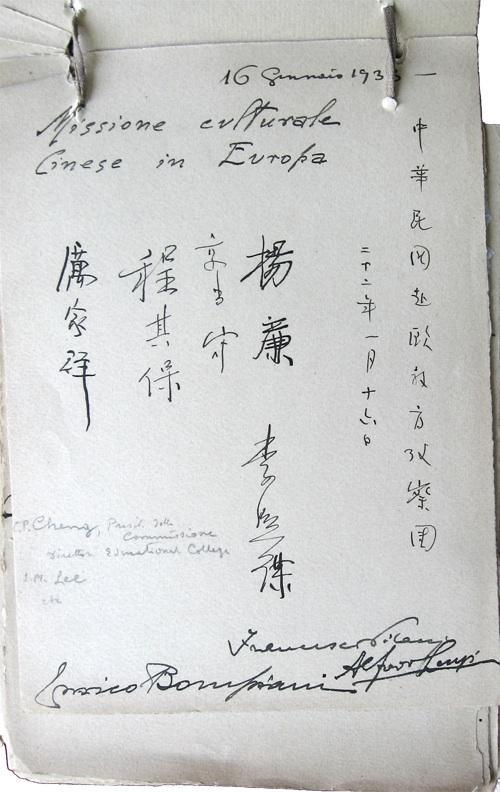 16 Gennaio 1933 —
Missione culturale
Cinese in Europa
中華民国赴歐敎育攷察团
二十二年一月十六日
楊廉
李熙謀
郭有守
程其保
厲家祥
C.P. Cheng, Presid. della
Commissione
Director Educational College
S.M. Lee
etc
Francesco
Enrico Bompiani